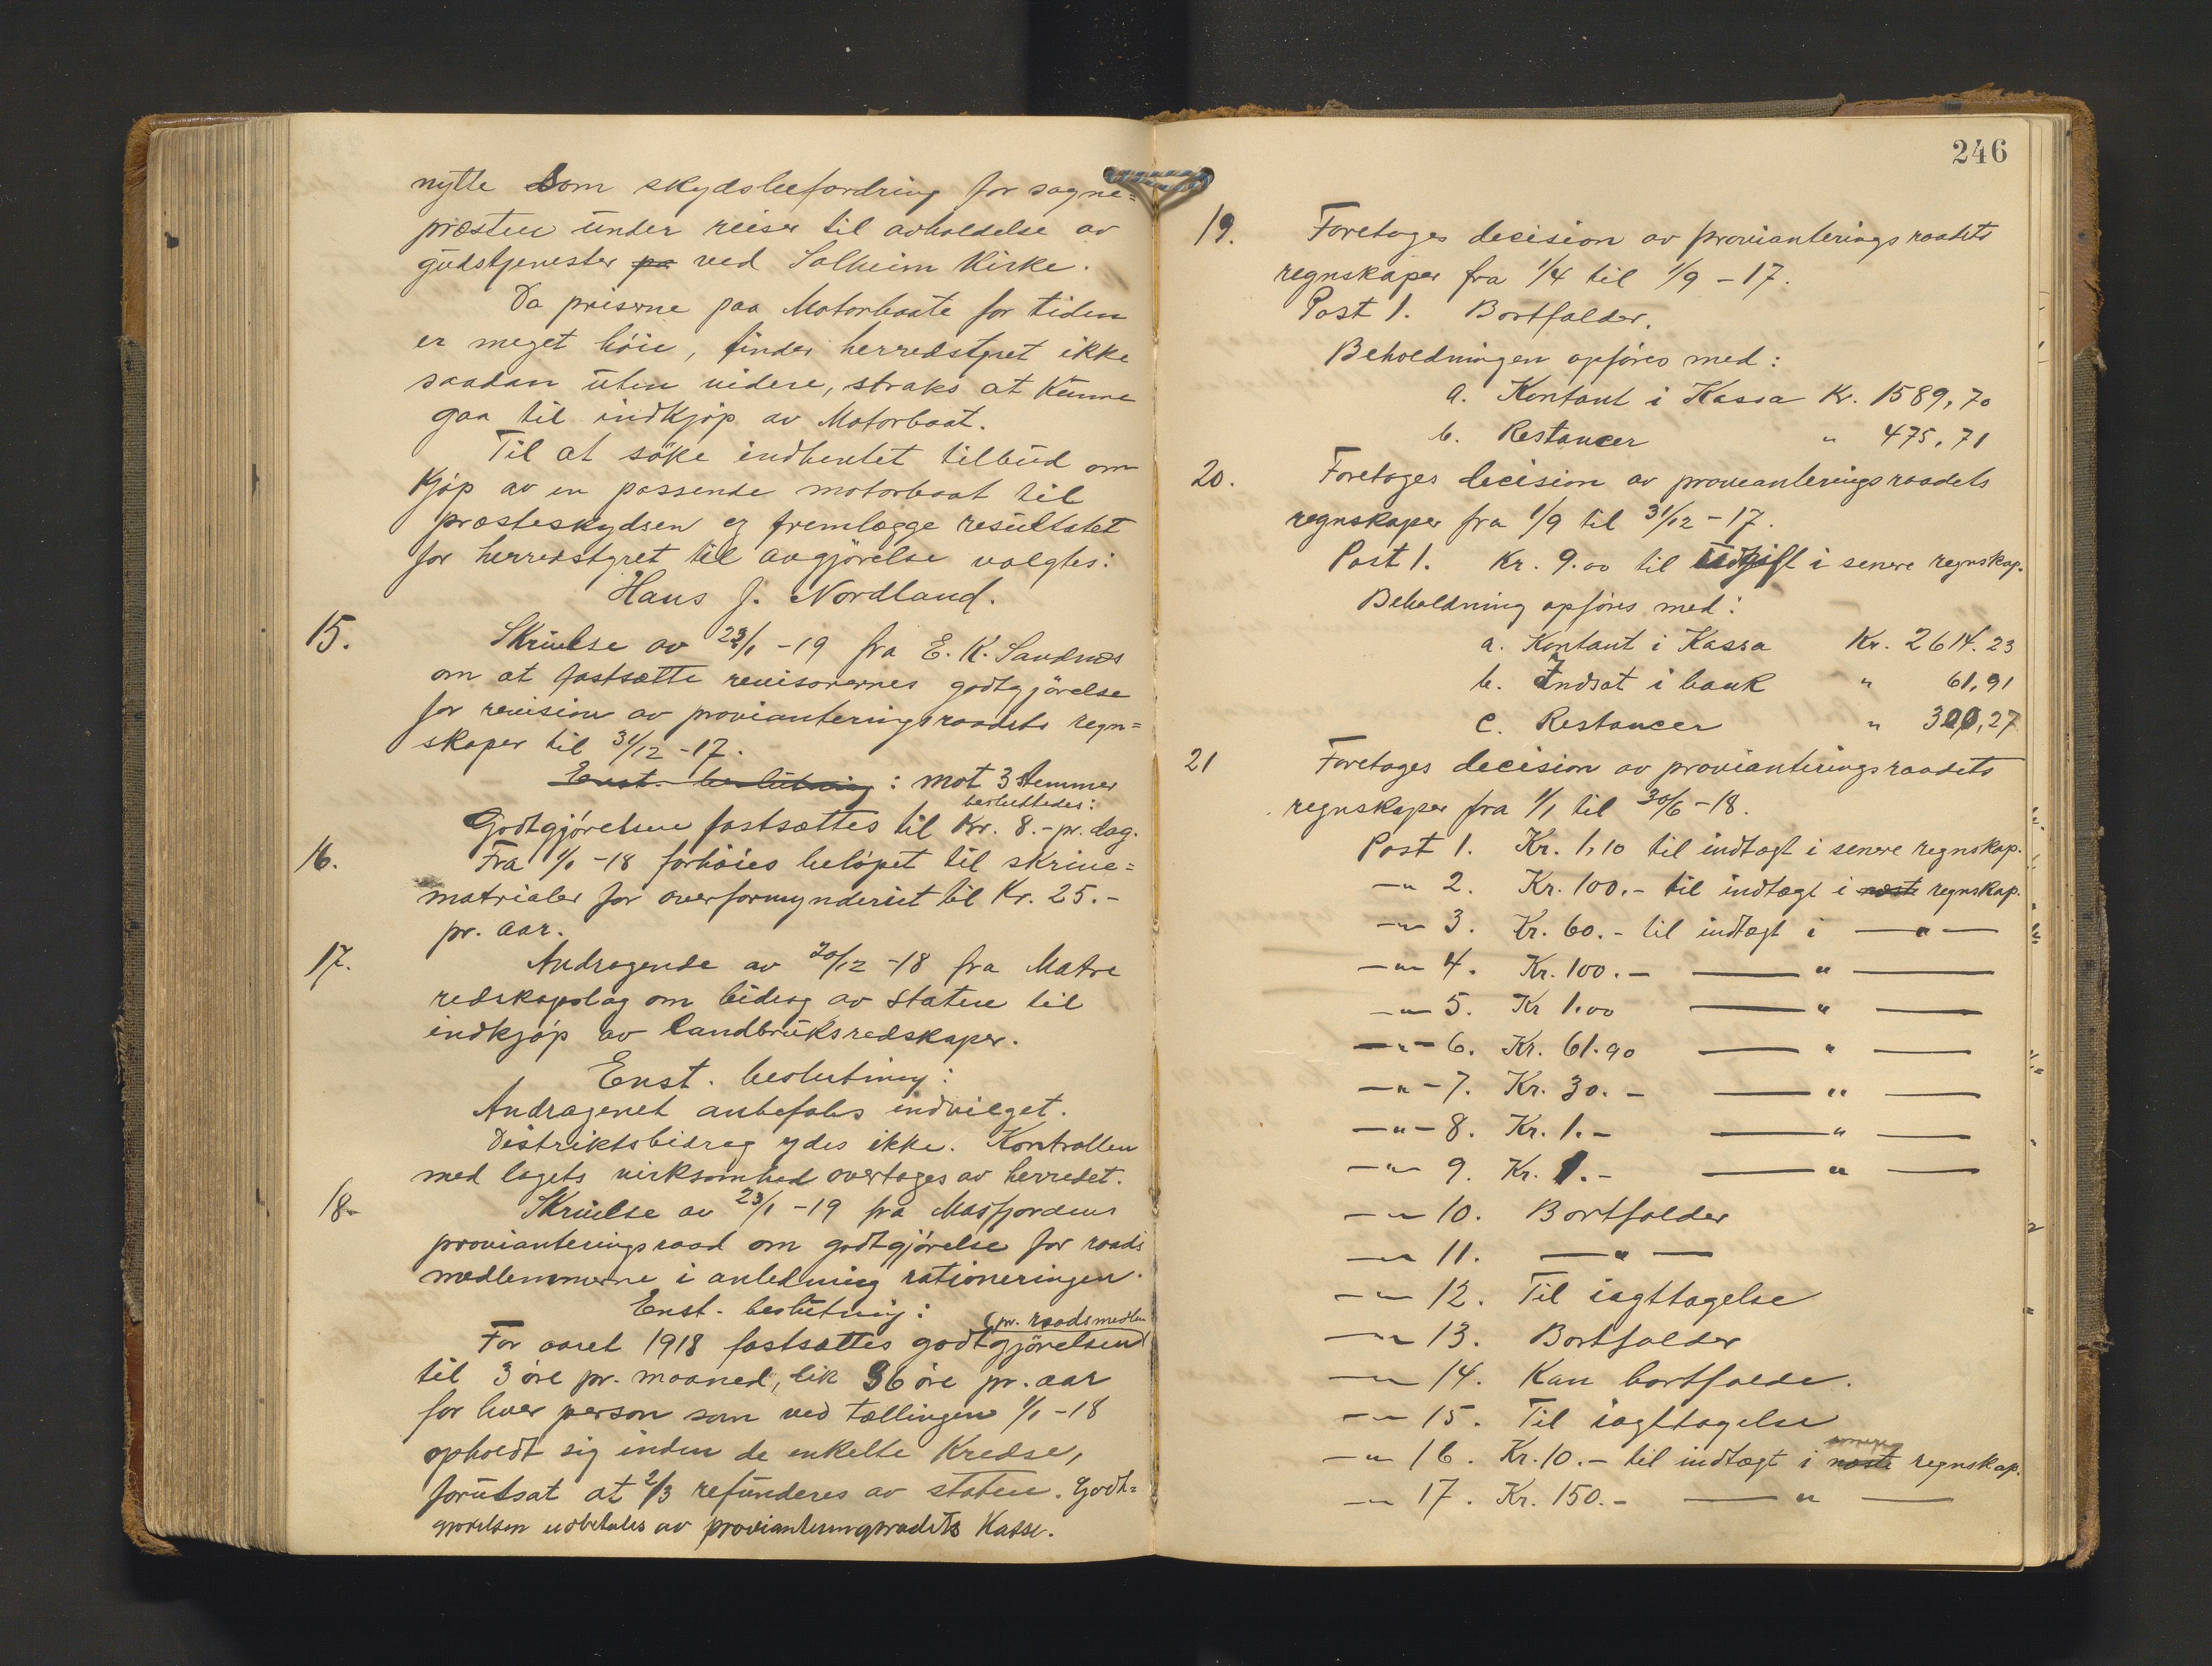 nytte som skydsbefordring for sogne=
præsten under reiser til avholdelse av
gudstjenester pa ved Solheim Kirke.
Da priserne paa Motorbaate for tiden
er meget høie, finder herredstyret ikke
saadan uten videre, straks at kunne
gaa til indkjøp av Motorbaat.
Til at søke indhentet tilbud om
Kjøp av en passende motorbaat til
præsteskydsen og fremlægge resultatet
for herredstyret til avgjørelse valgtes:
Hans J. Nordland.
15. Skrivelse av 23/1 -19 fra E. K. Sandnæs
om at fastsætte revisorernes godtgjørelse
for revision av provianteringsraadets regn=
skaper til 31/12 -17.
Enst. beslutning: mot 3 stemmer
besluttedes:
Godtgjørelsen fastsættes til Kr. 8.- pr. dag.
16. Fra 1/1 -18 forhøies beløpet til skrive=
matrialer for overformynderiet til Kr. 25.-
pr. aar.
17. Andragende av 20/12 -18 fra Matre
redskapslag om bidrag av staten til
indkjøp av landbruksredskaper.
Enst. beslutning:
Andragenet anbefales indvilget.
Distriktsbidrag ydes ikke. Kontrollen
med lagets virksomhed overtages av herredet.
18. Skrivelse av 23/1 -19 fra Masfjordens
provianteringsraad om godtgjørelse for raads
medlemmerne i anledning rationeringen.
Enst. beslutning:
(pr. raadsmedlem
For aaret 1918 fastsættes godtgjørelsen
til 3 øre pr. maaned, lik 36 øre pr. aar
for hver person som ved tællingen 1/1 -18
opholdt sig inden de enkelte Kredse,
forutsat at 2/3 refunderes av staten. Godt=
gjørelsen udbetales av provianteringsradets Kasse.
246
19. Foretages decision av provianteringsraadets
regnskaper fra 1/4 til 1/9 -17.
Post 1. Bortfalder.
Beholdningen opføres med:
a. Kontant i Kassa Kr. 1589,70
b. Restancer " 475,71
20. Foretages decision av provianteringsraadets
regnskaper fra 1/9 til 31/12 -17.
Post 1. Kr. 9.00 til Udgift i senere regnskap.
Beholdning opføres med:
a. Kontant i Kassa Kr. 2614.23
b. Indsat i bank " 61,91
c. Restancer " 300,27
21 Foretages decision av provianteringsraadets
regnskaper fra 1/1 til 30/6 -18.
Post 1. Kr. 1,10 til indtægt i senere regnskap.
-"- 2. Kr. 100.- til indtægt i næste regnskap.
-"- 3. Kr. 60.- til indtægt i -"-
-"- 4. Kr. 100.- -"-
-"- 5. Kr 1.00 -"-
-"- 6. Kr. 61.90 -"-
-"- 7. Kr. 30.- -"-
-"- 8. Kr. 1.- -"-
-"- 9. Kr. 1.- -"-
-"- 10. Bortfalder
-"- 11. -"-
-"- 12. Til iagttagelse
-"- 13. Bortfalder
-"- 14. Kan bortfalde.
-"- 15. Til iagttagelse
senere
-"- 16. Kr. 10.- til indtægt i næste regnskap.
-"- 17. Kr. 150.- -"-